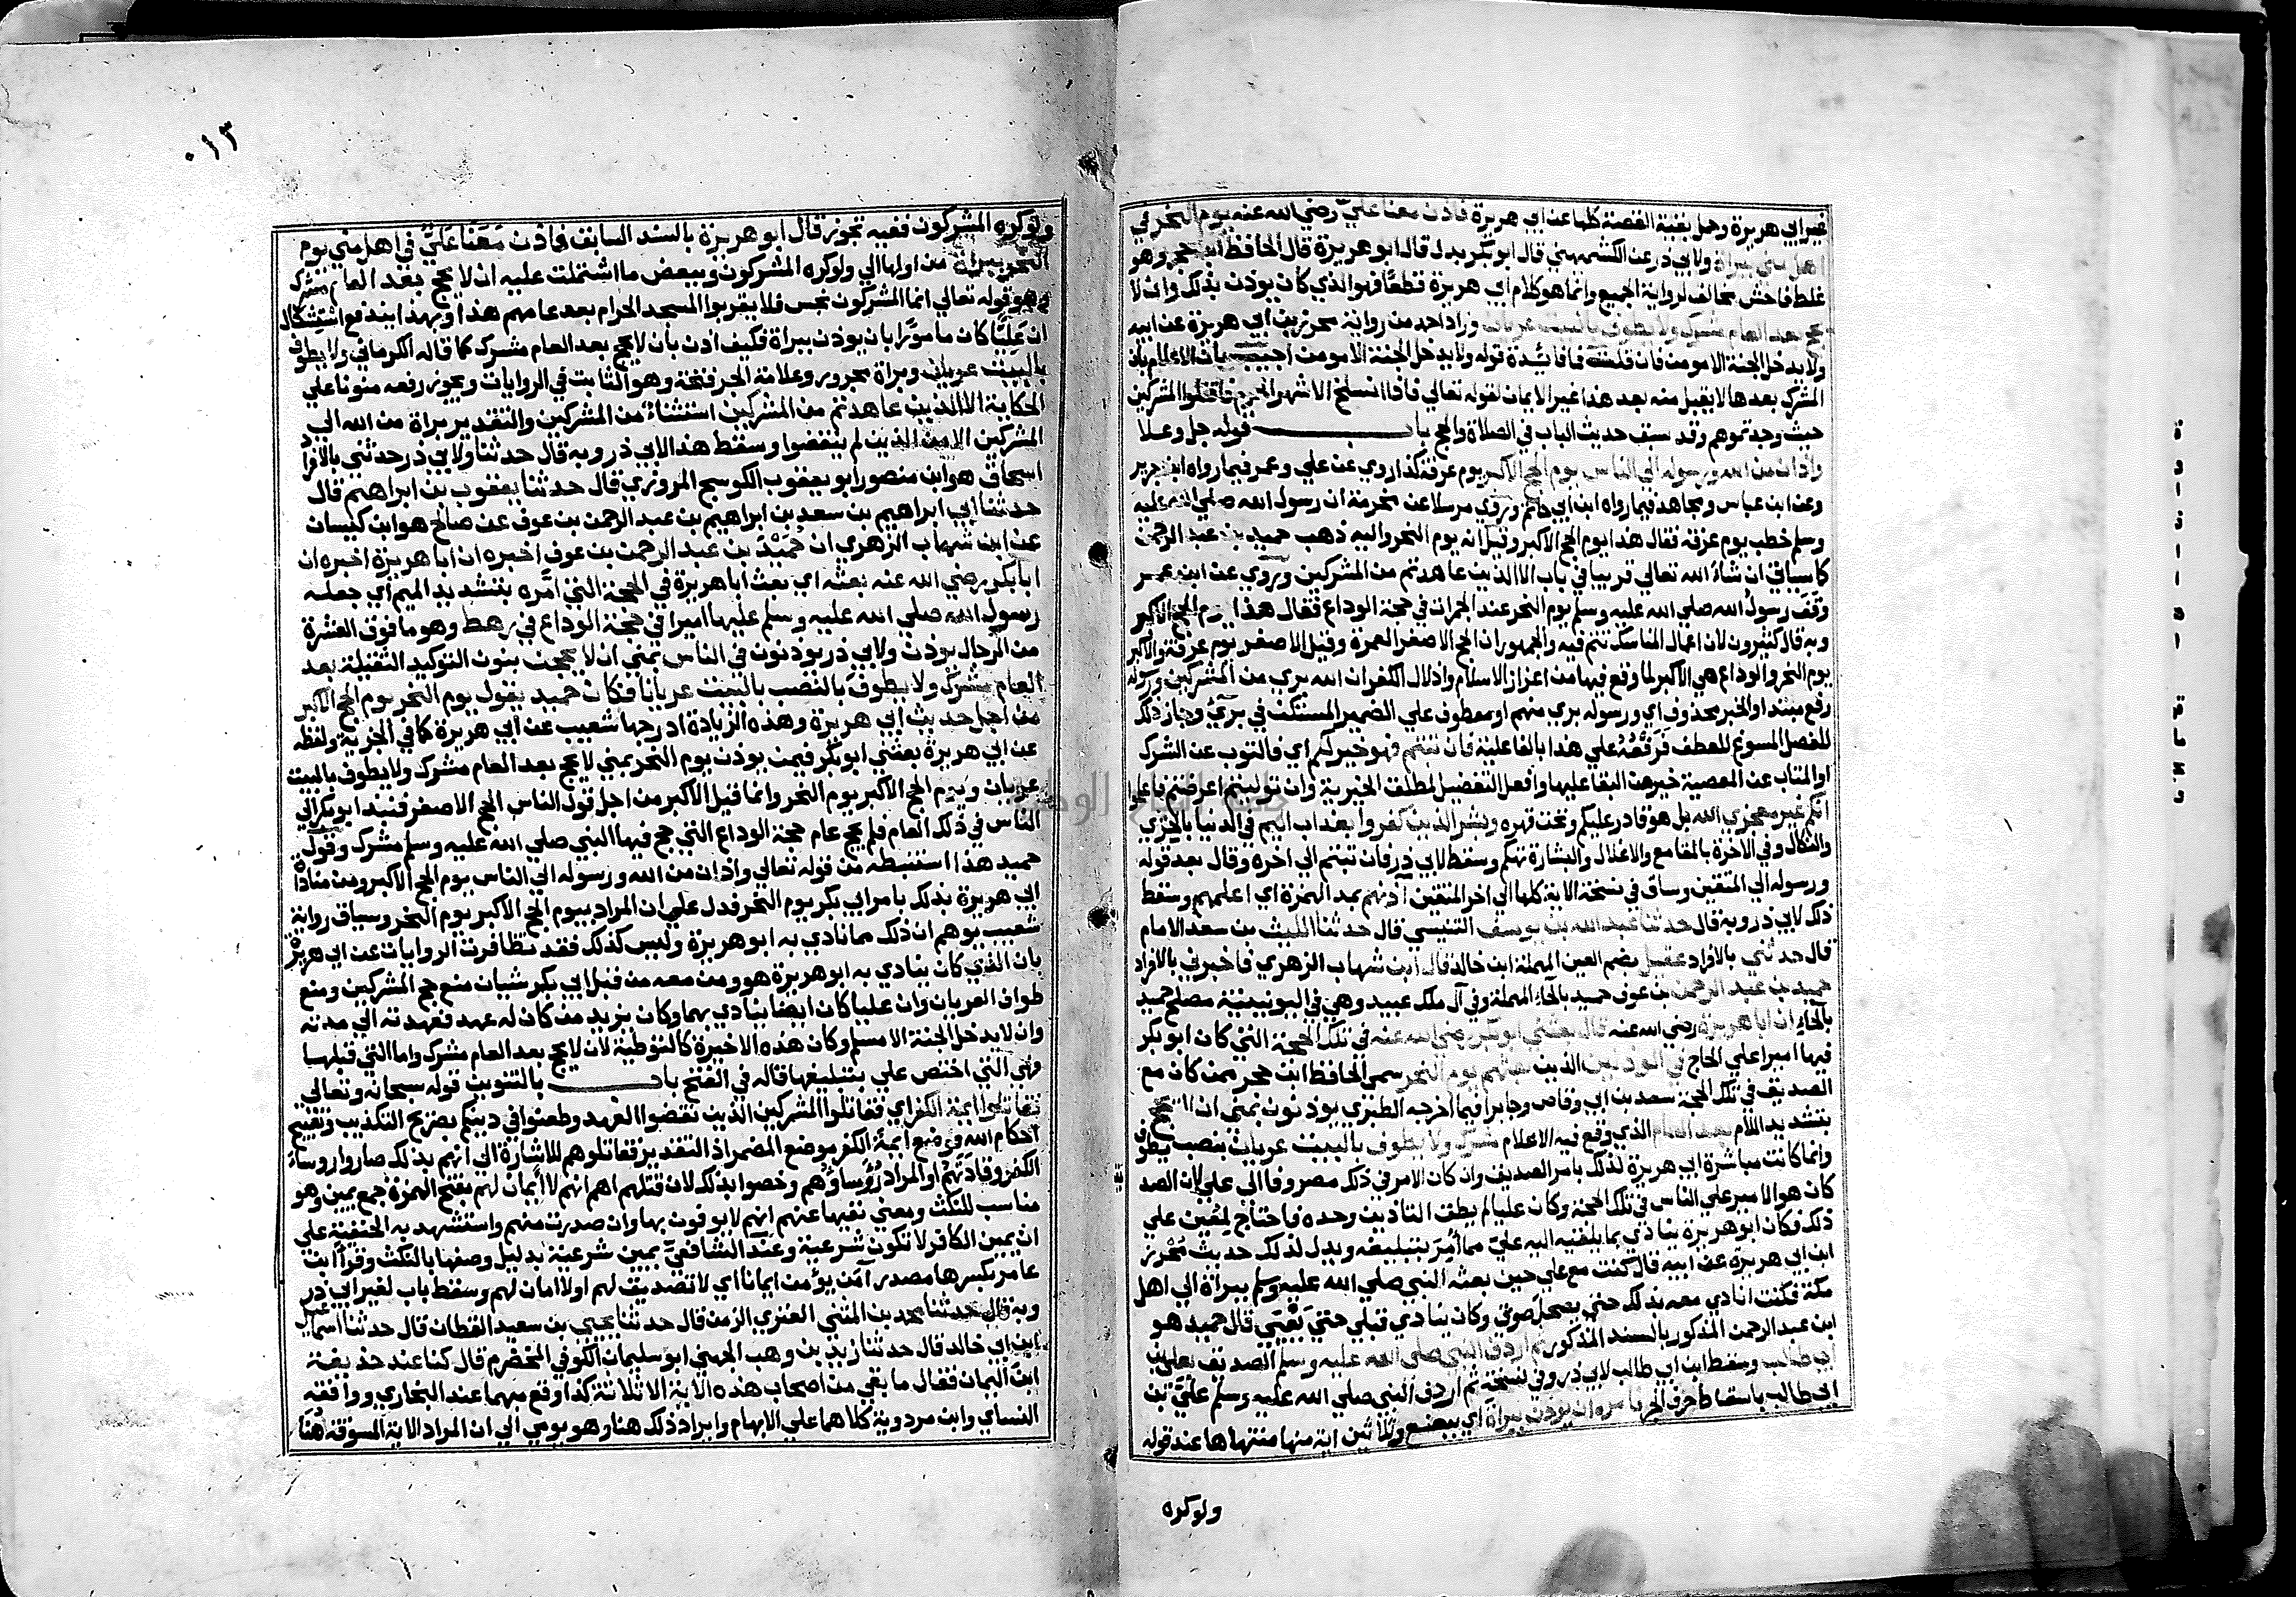 غير ابي هريرة وحمل بقية القصة كلها عن ابي هريرة فاذن معنا علي رضي الله عنه يوم النحر في
اهل مني ببراة ولابي ذر عن الكشميهني قال ابو بكر بدل قال ابو هريرة قال الحافظ ابن حجر وهو
غلط فاحش مخالف لرواية الجميع وانما هو كلام ابي هريرة قطعا فهو الذي كان يوذن بذلك وان لا
يحج بعد العام مشرك ولا يطوف بالبيت عريان وزاد احمد من رواية محرز بن ابي هريرة عن ابيه
ولا يدخل الجنة الا مومن فان قلت فما فائدة قوله ولا يدخل الجنة الا مومن اجيب بان الاعلام بان
المشرك بعدها لا يقبل منه بعد هذا غير الايمان لقوله تعالي فاذا انسلخ الاشهر الحرم فاقتلوا المشركين
حيث وجدتموهم وقد سبق حديث الباب في الصلاة والحج باب قوله جل وعلا
واذان من الله ورسوله الي الناس يوم الحج الاكبر يوم عرفة كذا روي عن علي وعمر فيما رواه ابن جرير
وعن ابن عباس ومجاهد فيما رواه ابن ابي حاتم وروي مرسلا عن مخرمة ان رسول الله صلي الله عليه
وسلم خطب يوم عرفة فقال هذا يوم الحج الاكبر وقيل انه يوم النحر واليه ذهب حميد بن عبد الرحمن
كما سياتي ان شاء الله تعالي قريبا في باب الا الذين عاهدتم من المشركين وروي عن ابن عمر
وقف رسول الله صلي الله عليه وسلم يوم النحر عند الجمرات في حجة الوداع فقال هذا يوم الحج الاكبر
وبه قال كثيرون لان اعمال المناسك تتم فيه والجمهور ان الحج الاصغر العمرة وقيل الاصغر يوم عرفة والاكبر
يوم النحر والوداع هي الاكبر لما وقع فيها من اعزاز الاسلام واذلال الكفر ان الله بري من المشركين ورسوله
رفع مبتدا والخبر محذوف اي ورسوله بري منهم او معطوف علي الضمير المستكن في بري وجاز ذلك
للفصل المسوغ للعطف فرفعه علي هذا بالفاعلية فان تبتم فهو خير لكم اي فالتوب عن الشرك
او المتاب عن المعصية خير من البقا عليها وافعل التفضيل لمطلق الخيرية وان توليتم اعرضتم فاعلموا
انكم غير معجزي الله بل هو قادر عليكم وتحت قهره وبشر الذين كفروا بعذاب اليم في الدنيا بالخزي
والنكال وفي الاخرة بالمقامع والاغلال والبشارة تهكم وسقط لابي ذر فان تبتم الي اخره وقال بعد قوله
ورسوله الي المتقين وساق في نسخة الاية كلها الي اخر المتقين آذنهم بمد الهمزة اي اعلمهم وسقط
ذلك لابي ذر وبه قال حدثنا عبد الله بن يوسف التنيسي قال حدثنا الليث بن سعد الامام
قال حدثني بالافراد عقيل بضم العين المهملة ابن خالد قال ابن شهاب الزهري فاخبرني بالافراد
حميد بن عبد الرحمن بن عوف حميد بالحاء المهملة وفي آل ملك عبيد وهي في اليونينية مصلح حميد
بالحاء ان ابا هريرة رضي الله عنه قال بعثني ابو بكر رضي الله عنه في تلك الحجة التي كان ابو بكر
فيها اميرا علي الحاج في الموذنين الذين بعثهم يوم النحر سمي الحافظ ابن حجر ممن كان مع
الصديق في تلك الحجة سعد بن ابي وقاص وجابرا فيما اخرجه الطبري يوذنون بمني ان لا يحج
بتشديد اللام بعد العام الذي وقع فيه الاعلام مشرك ولا يطوف بالبيت عريان بنصب يطوف
وانما كانت مباشرة ابي هريرة لذلك بامر الصديق وان كان الامر في ذلك مصروفا الي علي لان الصد
كان هو الامير علي الناس في تلك الحجة وكان عليا لم يطق التاذين وحده فاحتاج لمعين علي
ذلك فكان ابو هريرة ينادي بما يلقيه اليه علي مما امر بتبليغه ويدل لذلك حديث محرز
ابن ابي هريرة عن ابيه قال كنت مع علي حين بعثه النبي صلي الله عليه وسلم ببراة الي اهل
مكة فكنت انادي معه بذلك حتي يصحل صوتي وكان ينادي قبلي حتي يعيي قال حميد هو
ابن عبد الرحمن المذكور بالسند المذكور ثم اردف النبي صلي الله عليه وسلم الصديق بعلي بن
ابي طالب وسقط ابن ابي طالب لابي ذر وفي نسخة ثم اردف النبي صلي الله عليه وسلم علي بن
ابي طالب باسقاط حرف الجر فامره ان يوذن ببراة اي ببضع وثلاثين اية منها منتهاها عند قوله
ولو كره
٠١٣
ولو كره المشركون ففيه تجوز قال ابو هريرة بالسند السابق فاذن معنا علي في اهل مني يوم
النحر ببراة من اولها الي ولو كره المشركون وببعض ما اشتملت عليه ان لا يحج بعد العام مشرك
وهو قوله تعالي انما المشركون نجس فلا يقربوا المسجد الحرام بعد عامهم هذا وبهذا يندفع استشكال
ان عليا كان مامورا بان يوذن ببراة فكيف اذن بأن لا يحج بعد العام مشرك كما قاله الكرماني ولا يطوف
بالبيت عريان وبراة مجرور وعلامة الجر فتحة وهو الثابت في الروايات ويجوز رفعه منونا علي
الحكاية الا الذين عاهدتم من المشركين استثناء من المشركين والتقدير براة من الله الي
المشركين الا من الذين لم ينقضوا وسقط هذا لابي ذر وبه قال حدثنا ولابي ذر حدثني بالافراد
اسحاق هو ابن منصور ابو يعقوب الكوسج المروزي قال حدثنا يعقوب بن ابراهيم قال
حدثنا ابي ابراهيم بن سعد بن ابراهيم بن عبد الرحمن بن عوف عن صالح هو ابن كيسان
عن ابن شهاب الزهري ان حميد بن عبد الرحمن بن عوف اخبره ان ابا هريرة اخبره ان
ابا بكر رضي الله عنه بعثه اي بعث ابا هريرة في الحجة التي امره بتشديد الميم اي جعله
رسول الله صلي الله عليه وسلم عليها اميرا في حجة الوداع في رهط وهو ما فوق العشرة
من الرجال يوذن ولابي ذر يوذنون في الناس بمني ان لا يحجن بنون التوكيد الثقيلة بعد
العام مشرك ولا يطوف بالنصب بالبيت عريانا فكان حميد يقول يوم النحر يوم الحج الاكبر
من اجل حديث ابي هريرة وهذه الزيادة ادرجها شعيب عن ابي هريرة كما في الجزية ولفظه
عن ابي هريرة بعثني ابو بكر فيمن يوذن يوم النحر بمني لا يحج بعد العام مشرك ولا يطوف بالبيت
عريان ويوم الحج الاكبر يوم النحر وانما قيل الاكبر من اجل قول الناس الحج الاصغر فنبذ ابو بكر الي
الناس في ذلك العام فلم يحج عام حجة الوداع التي حج فيها النبي صلي الله عليه وسلم مشرك وقول
حميد هذا استنبطه من قوله تعالي واذان من الله ورسوله الي الناس يوم الحج الاكبر ومن مناداة
ابي هريرة بذلك بامر ابي بكر يوم النحر فدل علي ان المراد بيوم الحج الاكبر يوم النحر وسياق رواية
شعيب يوهم ان ذلك مما نادي به ابو هريرة وليس كذلك فقد تظافرت الروايات عن ابي هريرة
بان الذي كان ينادي به ابو هريرة هو ومن معه من قبل ابي بكر شيان منع حج المشركين ومنع
طواف العريان وان عليا كان ايضا ينادي بهما وكان يزيد من كان له عهد فعهدته الي مدته
وان لا يدخل الجنة الا مسلم وكان هذه الاخيرة كالتوطية لان لا يحج بعد العام مشرك واما التي قبلها
فهي التي اختص علي بتبليغها قاله في الفتح باب بالتنوين قوله سبحانه وتعالي
فقاتلوا ايمة الكفر اي فقاتلوا المشركين الذين نقضوا العهد وطعنوا في دينكم بصريح التكذيب وتقبيح
احكام الله فوضع ايمة الكفر موضع المضمر اذ التقدير فقاتلوهم للاشارة الي انهم بذلك صاروا روساء
الكفر وقادتهم او المراد رؤساؤهم وخصوا بذلك لان قتلهم اهم انهم لا أيمان لهم بفتح الهمزة جمع يمين وهو
مناسب للنكث ومعني نفيها عنهم انهم لا يوفون بها وان صدرت منهم واستشهد به الحنفية علي
ان يمين الكافر لا تكون شرعية وعند الشافعي يمين شرعية بدليل وصفها بالنكث وقرا ابن
عامر بكسرها مصدر آمن يؤمن ايمانا اي لا تصديق لهم او لا امان لهم وسقط باب لغير ابي ذر
وبه قال حدثنا محمد بن المثني العنزي الزمن قال حدثنا يحيي بن سعيد القطان قال حدثنا اسماعيل
ابن ابي خالد قال حدثنا زيد بن وهب الجهني ابو سليمان الكوفي المخضرم قال كنا عند حذيفة
ابن اليمان فقال ما بقي من اصحاب هذه الاية الا ثلاثة كذا وقع مبهما عند البخاري ووافقه
النساي وابن مردوية كلاهما علي الابهام وايراد ذلك هنا وهو يومي الي ان المراد الاية المسوقة هنا